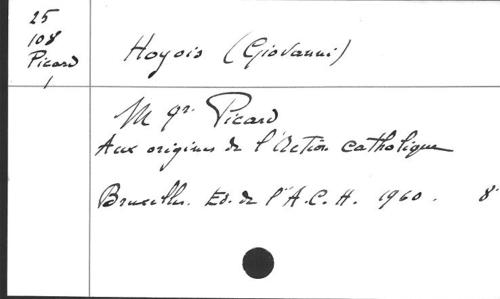 25
108
Picard
1
Hoyois (Giovanni)
Mgr. Picard
Aux origines de l'Action catholique
Bruxelles. Ed. de l'A.C.H. 1960. 8°